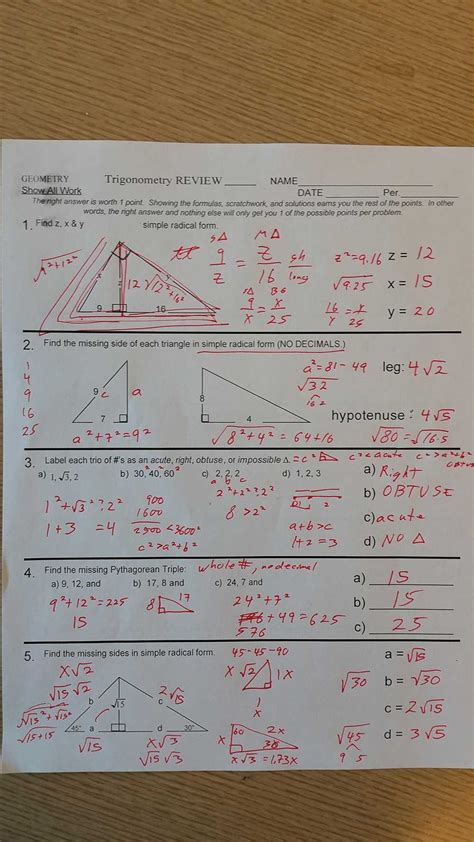 GEOMETRY Trigonometry REVIEW _____ NAME__________________
Show All Work DATE __________ Per.________
The right answer is worth 1 point. Showing the formulas, scratchwork, and solutions earns you the rest of the points. In other
words, the right answer and nothing else will only get you 1 of the possible points per problem.
1. Find z, x & y simple radical form.
√9²+12²
x y z
9 16
12 √12²+16²
S△ M△
9/z = z/16 sh/long
9/x = x/25
z² = 9·16 z = 12
√9·25 x = 15
16/y = y/25 y = 20
2. Find the missing side of each triangle in simple radical form (NO DECIMALS.)
1
4
9
16
25
9 c a
7
a² + 7² = 9²
8
4
√8² + 4² = 64+16
a² = 81 - 49 leg: 4√2
√32
16 2
hypotenuse : 4√5
√80 = √16·5
3. Label each trio of #'s as an acute, right, obtuse, or impossible △.
a) 1, √3, 2 b) 30, 40, 60 c) 2, 2, 2 d) 1, 2, 3
a b c
1² + √3² ? 2²
1 + 3 = 4
900
1600
2500 < 3600
c² > a² + b²
2² + 2² ? 2²
8 > 2²
a+b>c
1+2=3
a) Right
b) OBTUSE
c) acute
d) NO △
4. Find the missing Pythagorean Triple: whole #, no decimal
a) 9, 12, and b) 17, 8 and c) 24, 7 and
9² + 12² = 225
15
8 17
24² + 7²
576 + 49 = 625
a) 15
b) 15
c) 25
5. Find the missing sides in simple radical form.
45-45-90
x√2
√15 √2
√√15² + √15²
√15+15
b √15 c
2√15
45° a d 30°
√15
x√3
√15 √3
x√2 1x
1
x
60 2x
x 30
x√3 = 1.73x
√30
√45
9 5
a = √15
b = √30
c = 2√15
d = 3√5